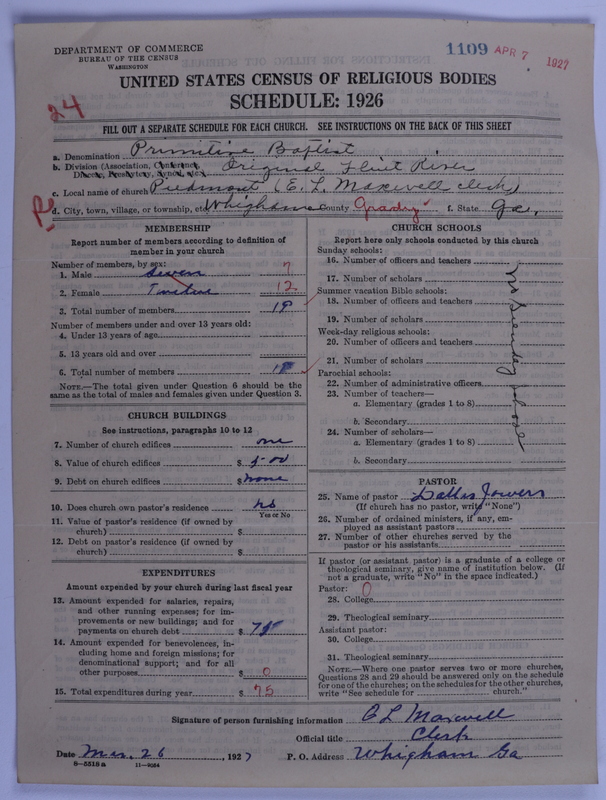 DEPARTMENT OF COMMERCE
BUREAU OF THE CENSUS
WASHINGTON
1109 APR 7 1927
UNITED STATES CENSUS OF RELIGIOUS BODIES
SCHEDULE: 1926
24
FILL OUT A SEPARATE SCHEDULE FOR EACH CHURCH. SEE INSTRUCTIONS ON THE BACK OF THIS SHEET
a. Denomination Primitive Baptist
b. Division (Association, Conference, Diocese, Presbytery, Synod, etc.) Original Flint River
c. Local name of church Piedmont (E. L. Maxwell clerk)
d. City, town, village, or township, etc. Whigham County Grady f. State Ga.
MEMBERSHIP
Report number of members according to definition of member in your church
Number of members, by sex:
1. Male Seven 7
2. Female Twelve 12
3. Total number of members 19
Number of members under and over 13 years old:
4. Under 13 years of age
5. 13 years old and over
6. Total number of members
NOTE.—The total given under Question 6 should be the same as the total of males and females given under Question 3.
CHURCH BUILDINGS
See instructions, paragraphs 10 to 12
7. Number of church edifices one
8. Value of church edifices $ 500
9. Debt on church edifices $ none
10. Does church own pastor's residence no
Yes or No
11. Value of pastor's residence (if owned by church) $
12. Debt on pastor's residence (if owned by church) $
EXPENDITURES
Amount expended by your church during last fiscal year
13. Amount expended for salaries, repairs, and other running expenses; for improvements or new buildings; and for payments on church debt $ 75
14. Amount expended for benevolences, including home and foreign missions; for denominational support; and for all other purposes $ 0
15. Total expenditures during year $ 75
CHURCH SCHOOLS
Report here only schools conducted by this church
Sunday schools:
16. Number of officers and teachers
17. Number of scholars
Summer vacation Bible schools:
18. Number of officers and teachers
19. Number of scholars
Week-day religious schools:
20. Number of officers and teachers
21. Number of scholars
Parochial schools:
22. Number of administrative officers
23. Number of teachers—
a. Elementary (grades 1 to 8)
b. Secondary
24. Number of scholars—
a. Elementary (grades 1 to 8)
b. Secondary
no Sunday school
PASTOR
25. Name of pastor Dallas Jowers
(If church has no pastor, write "None")
26. Number of ordained ministers, if any, employed as assistant pastors
27. Number of other churches served by the pastor or his assistants
If pastor (or assistant pastor) is a graduate of a college or theological seminary, give name of institution below. (If not a graduate, write "No" in the space indicated.)
Pastor: 0
28. College
29. Theological seminary
Assistant pastor:
30. College
31. Theological seminary
NOTE.—Where one pastor serves two or more churches, Questions 28 and 29 should be answered only on the schedule for one of the churches; on the schedules for the other churches, write "See schedule for church."
Signature of person furnishing information E L Maxwell
Official title Clerk
Date Mar. 26, 1927 P. O. Address Whigham Ga
8—5518a 11—9084